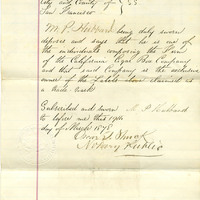 City and County of } S.S.
San Francisco
M. P. Hubbard being duly sworn
deposes and says that he is one of
the individuals composing the Firm
of the California Cigar Box Company
and that said Company is the exclusive
owner of the Labels claimed as
a Trade Mark
Subscribed and sworn M P Hubbard
to before me this 19th
day of March 1875
Notary Public